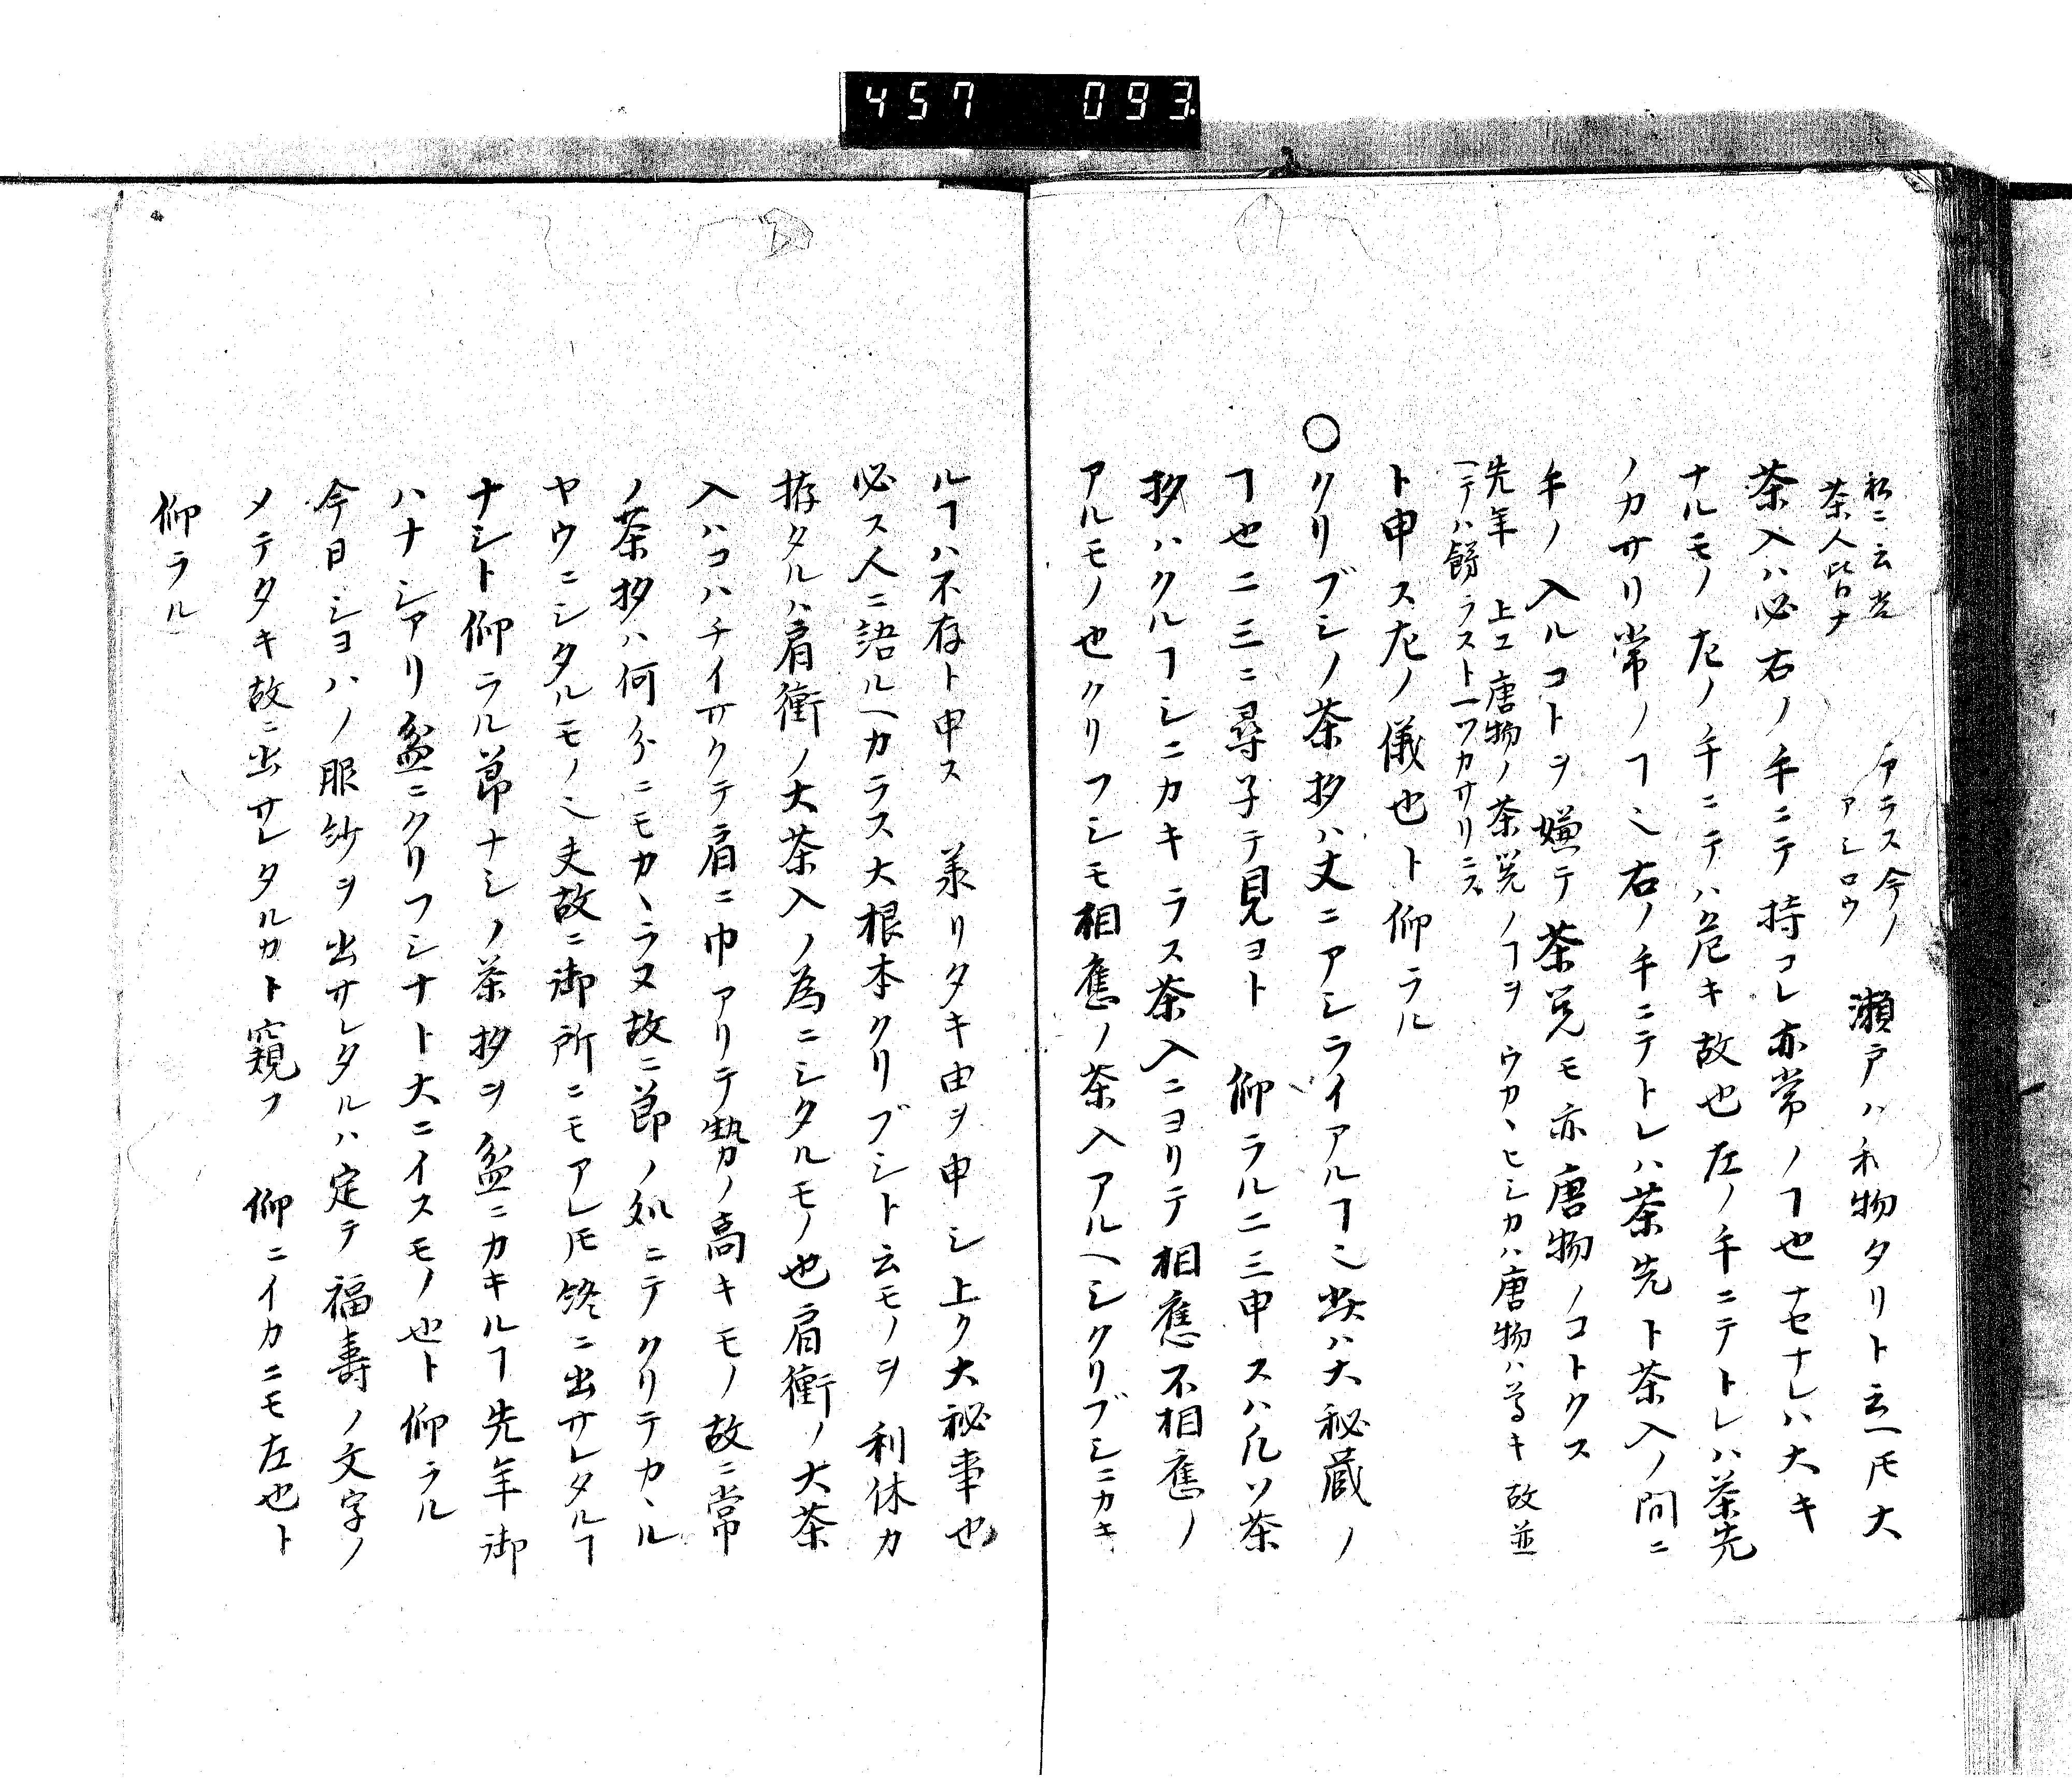 457 093
私ニ云当
茶人皆ナ
アラス今ノ
アシロウ
瀬戸ハ和物タリト云ヘ𪜈大
茶入ハ必右ノ手ニテ持コレ亦常ノヿ也ナセナレハ大キ
ナルモノ左ノ手ニテハ危キ故也左ノ手ニテトレハ茶先
ノカサリ常ノヿ也右ノ手ニテトレハ茶先ト茶入ノ間ニ
手ノ入ルコトヲ嫌テ茶筅モ亦唐物ノコトクス
先年 上エ唐物ノ茶筅ノヿヲウカヽヒシカハ唐物ハ尊キ故並
ヘテハ餝ラスト一ツカサリニス
ト申ス左ノ儀也ト仰ラル
〇クリブシノ茶杓ハ丈ニアシライアルヿ也 ハ大秘蔵ノ
ヿ也二三ニ尋子テ見ヨト 仰ラル二三申スハ凡ソ茶
杓ハクルフシニカキラス茶入ニヨリテ相應不相應ノ
アルモノ也クリフシモ相應ノ茶入アルヘシクリブシニカキ
ルヿハ不存ト申ス 義リタキ由ヲ申シ上ク大秘事也
必ス人ニ語ルヘカラス大根本クリブシト云モノヲ利休カ
拵タルハ肩衝ノ大茶入ノ為ニシタルモノ也肩衝ノ大茶
入ハコハチイサクテ肩ニ巾アリテ勢ノ高キモノ故ニ常
ノ茶杓ハ何分ニモカヽラヌ故ニ節ノ処ニテクリテカヽル
ヤウニシタルモノ也夫故ニ御所ニモアレ𪜈終ニ出サレタルヿ
ナシト仰ラル節ナシノ茶杓ヲ盆ニカキルヿ先年御
ハナシアリ盆ニクリフシナト大ニイスモノ也ト仰ラル
今日シヨハノ服紗ヲ出サレタルハ定テ福壽ノ文字ノ
メテタキ故ニ出サレタルカト窺フ 仰ニイカニモ左也ト
仰ラル